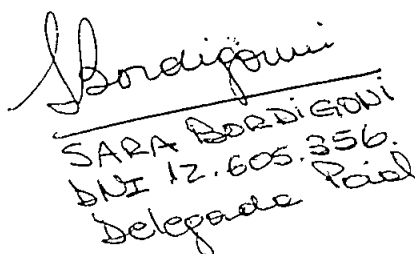 SBordigoni
SARA BORDIGONI
DNI 12.605.356.
Delegada Pcial